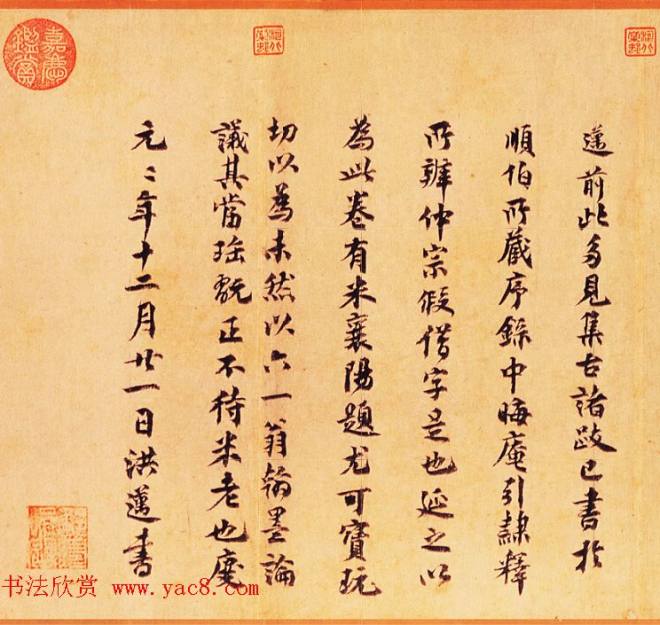 邁前此多見集古諸跋已書於
順伯所藏序錄中晦庵引隸釋
所辨仲宗假借字是也延之以
為此卷有米襄陽題尤可寶玩
切以為未然以六一翁翰墨論
議其當珤翫正不待米老也慶
元二年十二月廿一日洪邁書
嘉慶鑑賞
书法欣赏 www.yac8.com